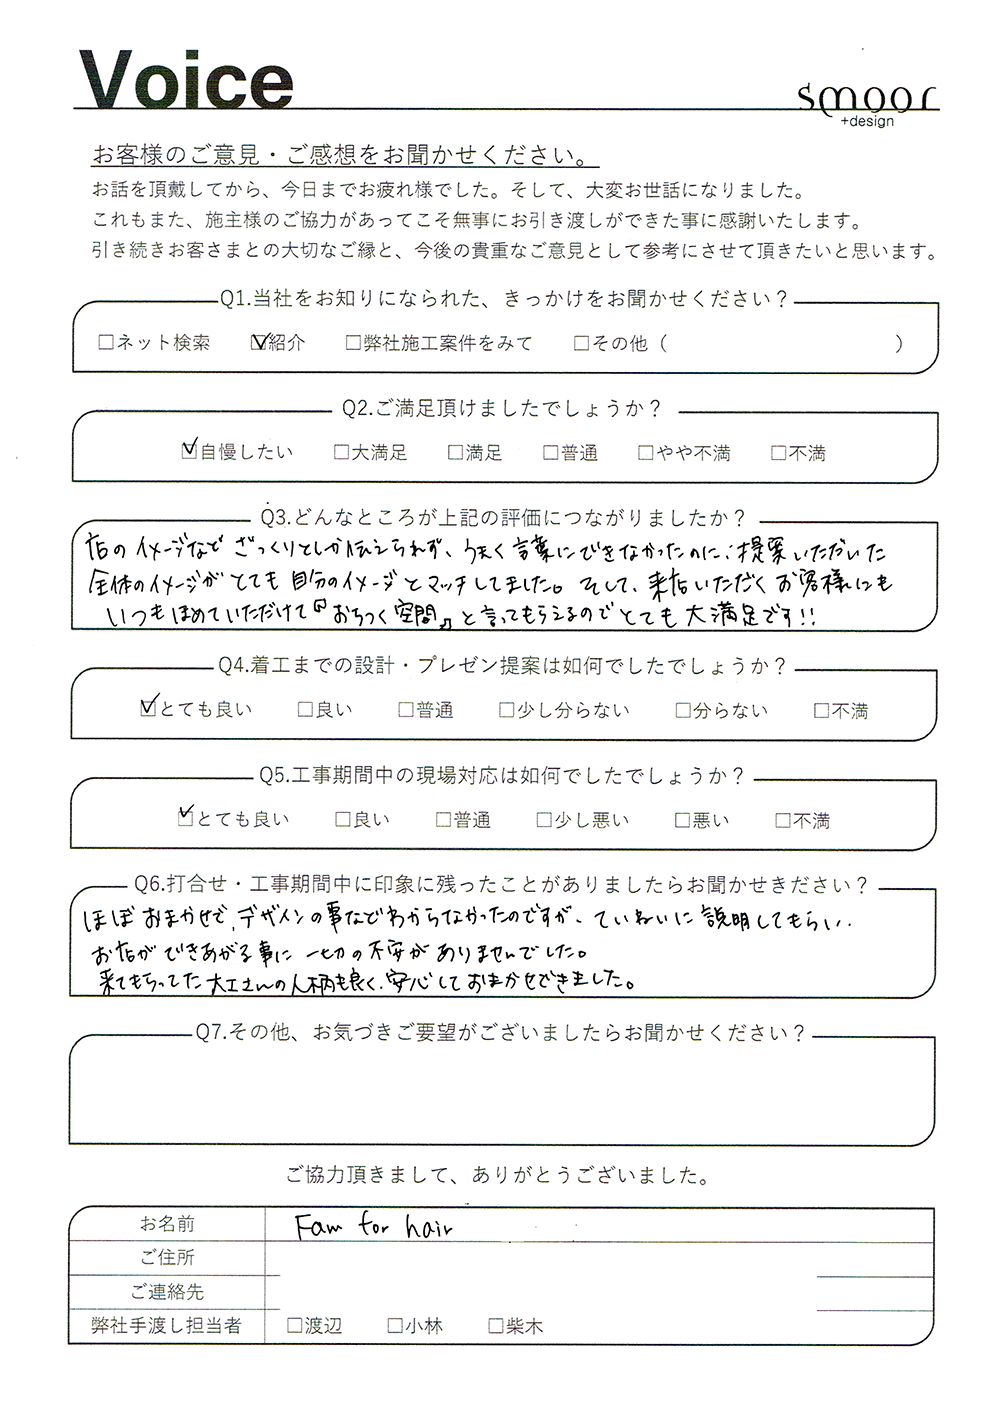 Voice
smoor
+design
お客様のご意見・ご感想をお聞かせください。
お話を頂戴してから、今日までお疲れ様でした。そして、大変お世話になりました。
これもまた、施主様のご協力があってこそ無事にお引き渡しができた事に感謝いたします。
引き続きお客さまとの大切なご縁と、今後の貴重なご意見として参考にさせて頂きたいと思います。
Q1.当社をお知りになられた、きっかけをお聞かせください？
□ネット検索 ☑紹介 □弊社施工案件をみて □その他（ ）
Q2.ご満足頂けましたでしょうか？
☑自慢したい □大満足 □満足 □普通 □やや不満 □不満
Q3.どんなところが上記の評価につながりましたか？
店のイメージなど ざっくりとしか伝えられず、うまく言葉にできなかったのに、提案いただいた
全体のイメージがとても自分のイメージとマッチしてました。そして、来店いただくお客様にも
いつもほめていただけて『おちつく空間』と言ってもらえるのでとても大満足です!!
Q4.着工までの設計・プレゼン提案は如何でしたでしょうか？
☑とても良い □良い □普通 □少し分らない □分らない □不満
Q5.工事期間中の現場対応は如何でしたでしょうか？
☑とても良い □良い □普通 □少し悪い □悪い □不満
Q6.打合せ・工事期間中に印象に残ったことがありましたらお聞かせきださい？
ほぼおまかせで、デザインの事などわからなかったのですが、ていねいに説明してもらい、
お店ができあがる事に一切の不安がありませんでした。
来てもらってた大工さんの人柄も良く、安心しておまかせできました。
Q7.その他、お気づきご要望がございましたらお聞かせください？
ご協力頂きまして、ありがとうございました。
お名前 Fam for hair
ご住所
ご連絡先
弊社手渡し担当者 □渡辺 □小林 □柴木